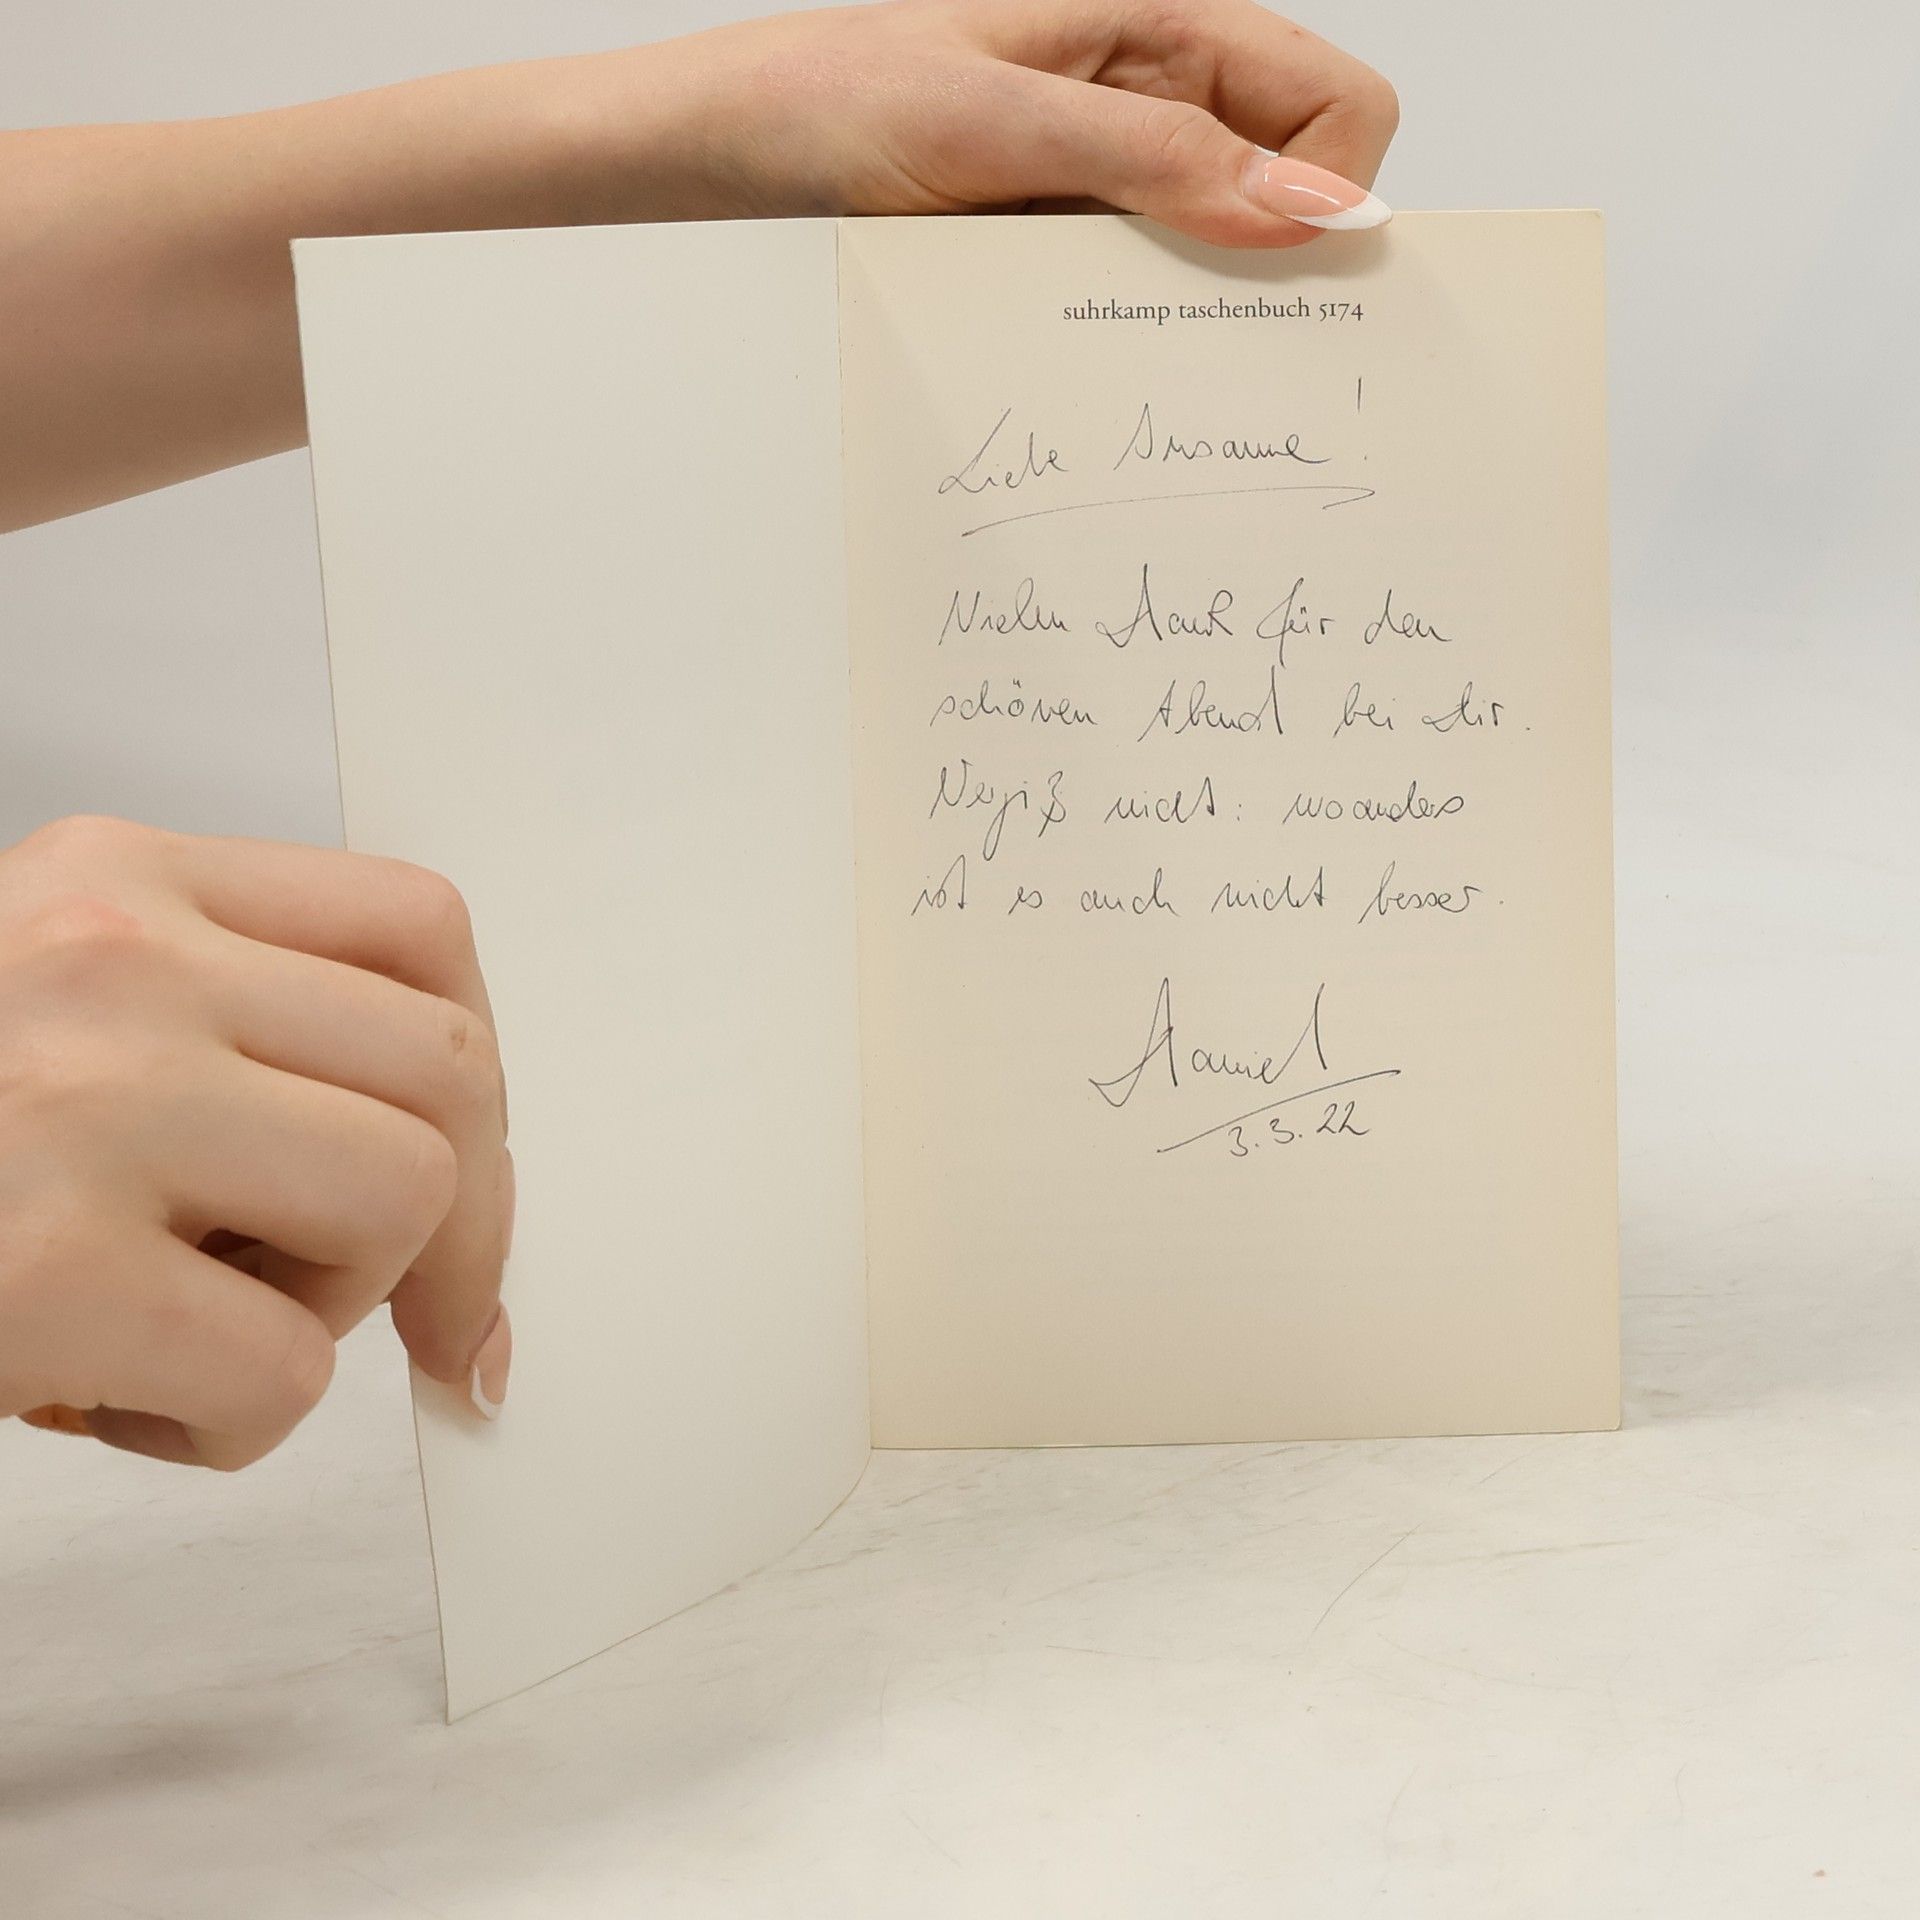 suhrkamp taschenbuch 5174
Liebe Susanne!
Vielen Dank für den
schönen Abend bei Dir.
Vergiß nicht: woanders
ist es auch nicht besser.
Daniel
3.3.22